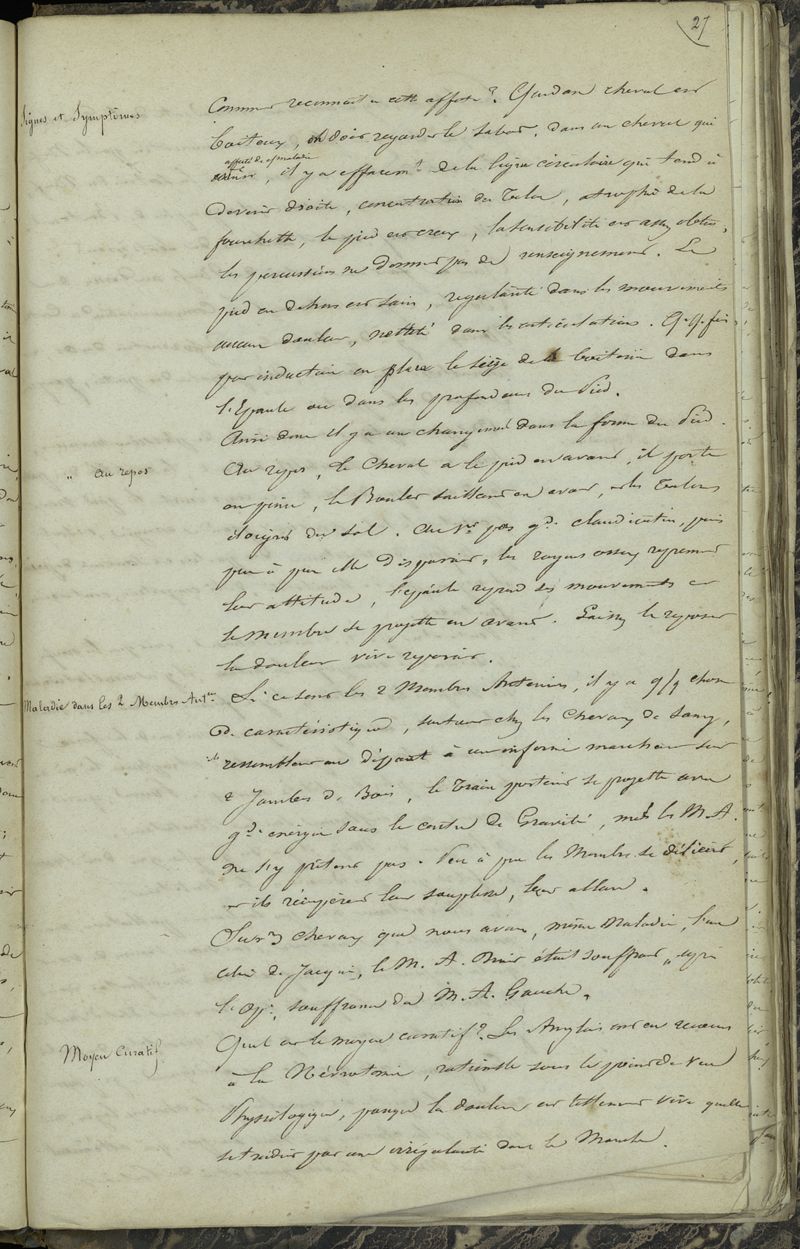 27
Signes et Symptômes
Comment reconnait on cette affect.? Quand un cheval est
boiteux, on doit regarder le sabot, dans un cheval qui
affecté de c. maladie
il y a effacem.t de la ligne circulaire qui tend à
devenir droite, concentration des Talons, atrophie de la
fourchette, le pied est creux, la sensibilité est assez obtuse,
les percussions ne donnent pas de renseignement. Le
pied en dehors est sain, régularité dans les mouvements
aucune douleur, netteté dans les articulations. Q.q. fois
par induction on place le siège de la boiterie dans
l'Epaule ou dans les profondeurs du Pied.
Ainsi donc il y a un changement dans la forme du Pied.
" au repos
Au repos, le Cheval a le pied en avant, il porte
en pince, le Boulet saillant en avant, et les Talons
éloignés du sol. Au 1er pas g.de claudication, puis
peu à peu elle disparait, les rayons osseux reprennent
leur attitude, l'épaule reprend ses mouvements et
le membre se projette en avant. Laissez le reposer
la douleur vive reparait.
Maladie dans les 2 Membres Ant.rs
Si ce sont les 2 Membres Antérieurs, il y a q/q chose
de caractéristique, surtout chez les Chevaux de sang,
ils ressemblent au départ à un infirme marchant sur
2 Jambes de Bois, le Train postérieur se projette avec
g.de énergie sous le centre de Gravité, mais les M. A.
ne s'y prêtent pas. Peu à peu les Membres se délient,
et ils récupèrent leur souplesse, leur allure.
Sur 3 Chevaux que nous avons, même Maladie, l'un
celui de Jacquin, le M. A. Droit était souffrant, après
l'op., souffrance du M. A. Gauche.
Moyen Curatif.
Quel est le moyen curatif? Les Anglais ont eu recours
à la Névrotomie, rationelle sous le point de vue
Physiologique, parceque la douleur est tellement vive quelle
se traduit par une irrégularité dans la Marche.